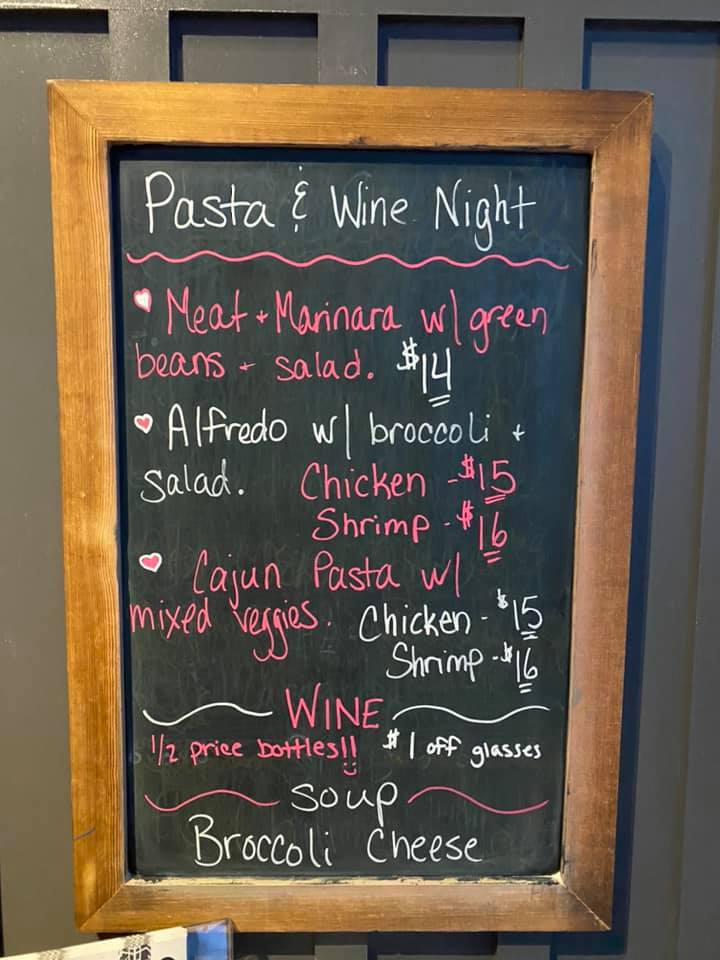 Pasta & Wine Night
Meat + Marinara w/ green
beans + salad. $14
Alfredo w/ broccoli +
salad. Chicken - $15
Shrimp - $16
Cajun Pasta w/
mixed veggies. Chicken - $15
Shrimp - $16
WINE
1/2 price bottles!! $1 off glasses
Soup
Broccoli Cheese